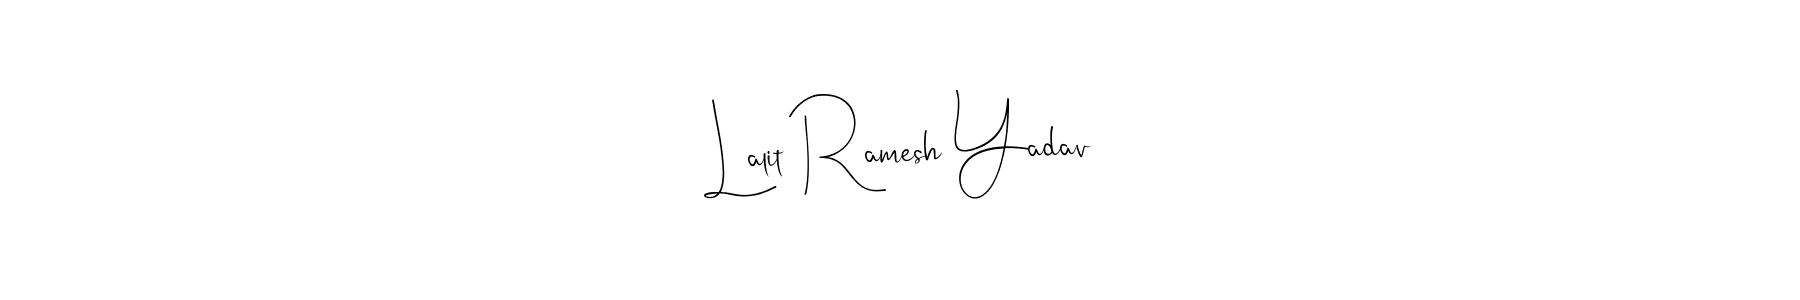 Lalit Ramesh Yadav